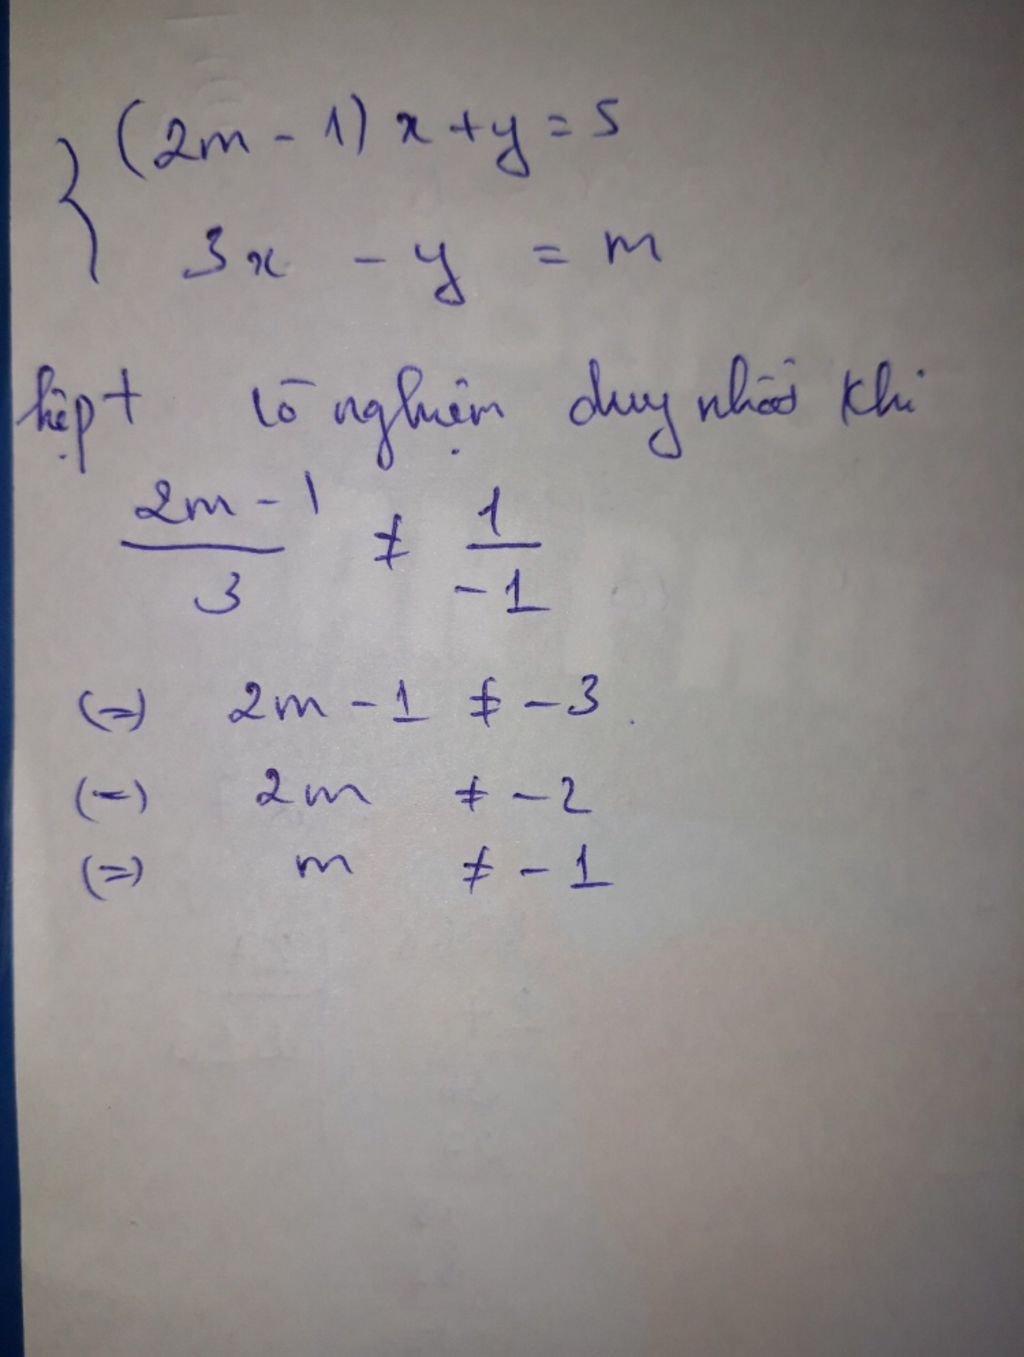 { (2m - 1) x + y = 5
3x - y = m
hệpt có nghiệm duy nhất khi
\frac{2m - 1}{3} ≠ \frac{1}{-1}
(=) 2m - 1 ≠ -3.
(=) 2m ≠ -2
(=) m ≠ -1